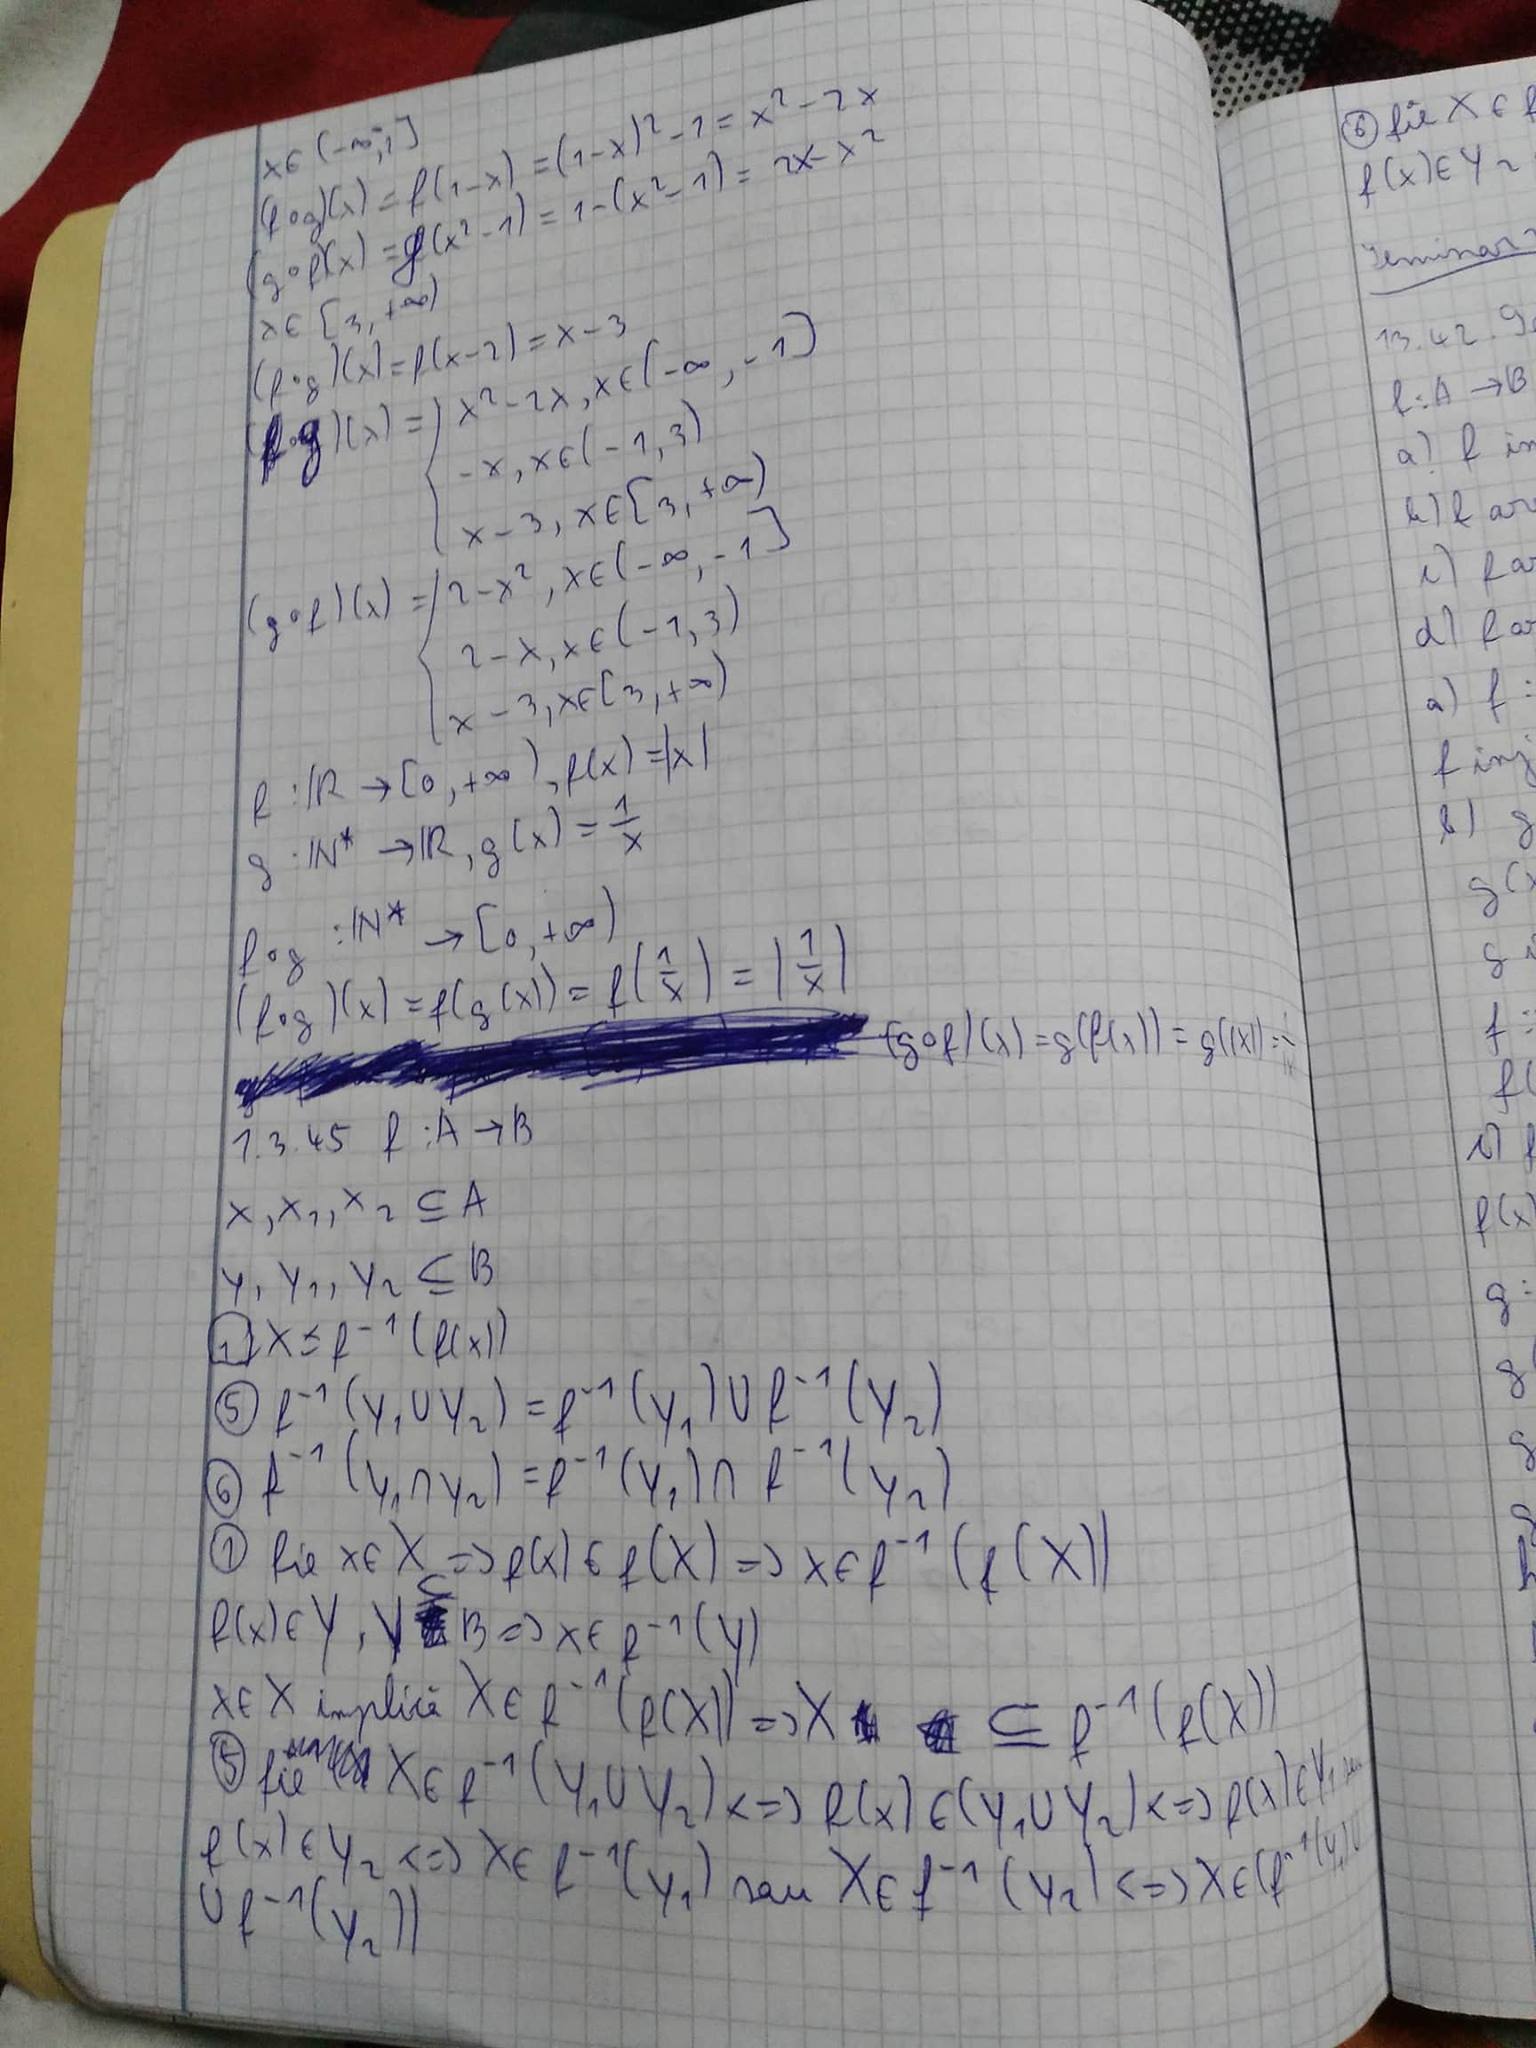 x∈(-∞,1]
(f∘g)(x) = f(1-x) = (1-x)² - 1 = x² - 2x
(g∘f)(x) = g(x²-1) = 1-(x²-1) = 2x-x²
x∈[3,+∞)
(f∘g)(x) = f(x-2) = x-3
(f∘g)(x) = { x²-2x, x∈(-∞,-1]
-x, x∈(-1,3)
x-3, x∈[3,+∞)
(g∘f)(x) = { 2-x², x∈(-∞,-1]
2-x, x∈(-1,3)
x-3, x∈[3,+∞)
f:ℝ→[0,+∞), f(x)=|x|
g:ℕ*→ℝ, g(x)=1/x
f∘g :ℕ*→[0,+∞)
(f∘g)(x) = f(g(x)) = f(1/x) = |1/x|
(g∘f)(x) = g(f(x)) = g(|x|) =
1.3.45 f:A→B
X, X₁, X₂ ⊆ A
Y, Y₁, Y₂ ⊆ B
① X ⊆ f⁻¹(f(x))
⑤ f⁻¹(Y₁∪Y₂) = f⁻¹(Y₁)∪f⁻¹(Y₂)
⑥ f⁻¹(Y₁∩Y₂) = f⁻¹(Y₁)∩ f⁻¹(Y₂)
① fie x∈X => f(x)∈f(X) => x∈f⁻¹(f(X))
f(x)∈Y, Y ⊆ B => x∈f⁻¹(Y)
x∈X implică X∈f⁻¹(f(X)) => X ⊆ f⁻¹(f(X))
⑤ fie X∈f⁻¹(Y₁∪Y₂) <=> f(x)∈(Y₁∪Y₂) <=> f(x)∈Y₁ sau
f(x)∈Y₂ <=> X∈f⁻¹(Y₁) sau X∈f⁻¹(Y₂) <=> X∈(f⁻¹(Y₁)∪
∪f⁻¹(Y₂))
⑥ fie X∈f
f(x)∈Y₂
Seminar
1.3.42.
f:A→B
a) f in
b) f are
c) f ar
d) f ar
a) f:
f inj
b) g
g(x
f:
f(
c) f
f(x)
g:
g(
g